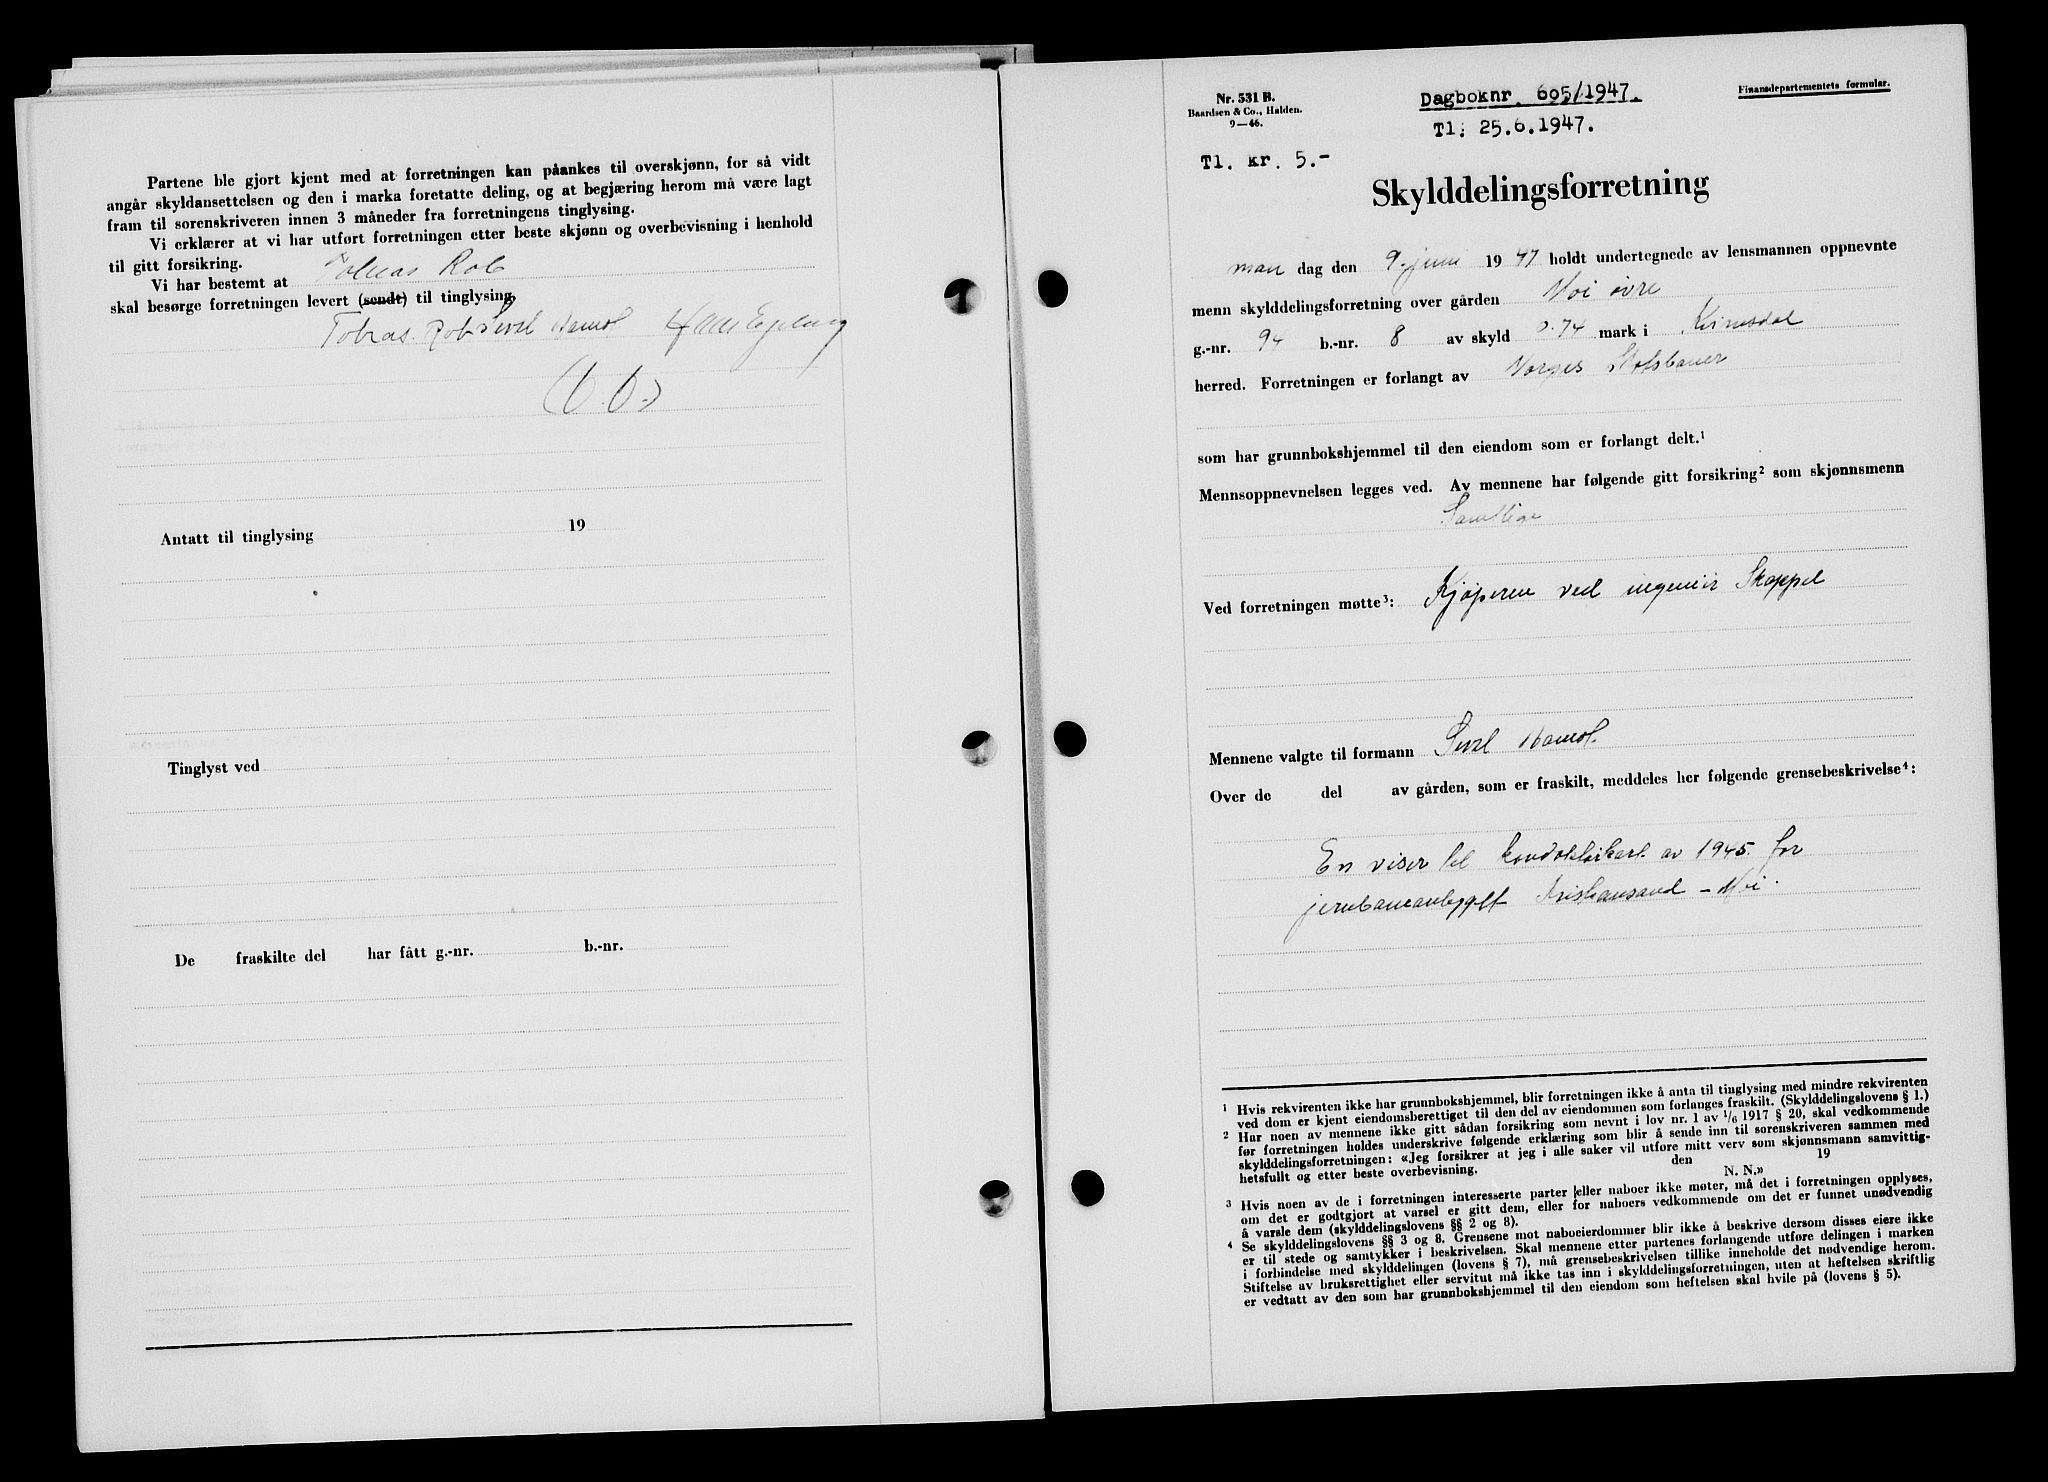 Partene ble gjort kjent med at forretningen kan påankes til overskjønn, for så vidt
angår skyldansettelsen og den i marka foretatte deling, og at begjæring herom må være lagt
fram til sorenskriveren innen 3 måneder fra forretningens tinglysing.
Vi erklærer at vi har utført forretningen etter beste skjønn og overbevisning i henhold
til gitt forsikring.
Vi har bestemt at Tobias Rob
skal besørge forretningen levert (sendt) til tinglysing.
Tobias Rob Sivel Hamol
Antatt til tinglysing 19
Tinglyst ved
De fraskilte del har fått g.-nr. b.-nr.
Nr. 531 B.
Baardsen & Co., Halden.
9—46.
Dagboknr. 605/1947.
Tl. 25.6.1947.
Finansdepartementets formular.
Tl. kr. 5.-
Skylddelingsforretning
man dag den 9. juni 1947 holdt undertegnede av lensmannen oppnevnte
menn skylddelingsforretning over gården Moi øvre
g.-nr. 94 b.-nr. 8 av skyld 0.74 mark i Kvinesdal
herred. Forretningen er forlangt av Norges Statsbaner
som har grunnbokshjemmel til den eiendom som er forlangt delt.¹
Mennsoppnevnelsen legges ved. Av mennene har følgende gitt forsikring² som skjønnsmenn
Samtlige
Ved forretningen møtte³: Kjøperen ved ingeniør Skappel
Mennene valgte til formann Sivel Hamol.
Over de del av gården, som er fraskilt, meddeles her følgende grensebeskrivelse⁴:
En viser til konduktørkart av 1945 for
jernbaneanlegget Kristiansand - Moi.
¹ Hvis rekvirenten ikke har grunnbokshjemmel, blir forretningen ikke å anta til tinglysing med mindre rekvirenten
ved dom er kjent eiendomsberettiget til den del av eiendommen som forlanges fraskilt. (Skylddelingslovens § 1.)
² Har noen av mennene ikke gitt sådan forsikring som nevnt i lov nr. 1 av 1/6 1917 § 20, skal vedkommende
før forretningen holdes underskrive følgende erklæring som blir å sende inn til sorenskriveren sammen med
skylddelingsforretningen: «Jeg forsikrer at jeg i alle saker vil utføre mitt verv som skjønnsmann samvittig-
hetsfullt og etter beste overbevisning. den 19
N. N.»
³ Hvis noen av de i forretningen interesserte parter eller naboer ikke møter, må det i forretningen opplyses,
om det er godtgjort at varsel er gitt dem, eller for naboers vedkommende om det er funnet unødvendig
å varsle dem (skylddelingslovens §§ 2 og 8).
⁴ Se skylddelingslovens §§ 3 og 8. Grensene mot naboeierdommer blir ikke å beskrive dersom disses eiere ikke
er til stede og samtykker i beskrivelsen. Skal mennene etter partenes forlangende utføre delingen i marken
i forbindelse med skylddelingen (lovens § 7), må grensebeskrivelsen tillike inneholde det nødvendige herom.
Stiftelse av bruksrettighet eller servitut må ikke tas inn i skylddelingsforretningen, uten at heftelsen skriftlig
er vedtatt av den som har grunnbokshjemmel til den eiendom som heftelsen skal hvile på (lovens § 5).